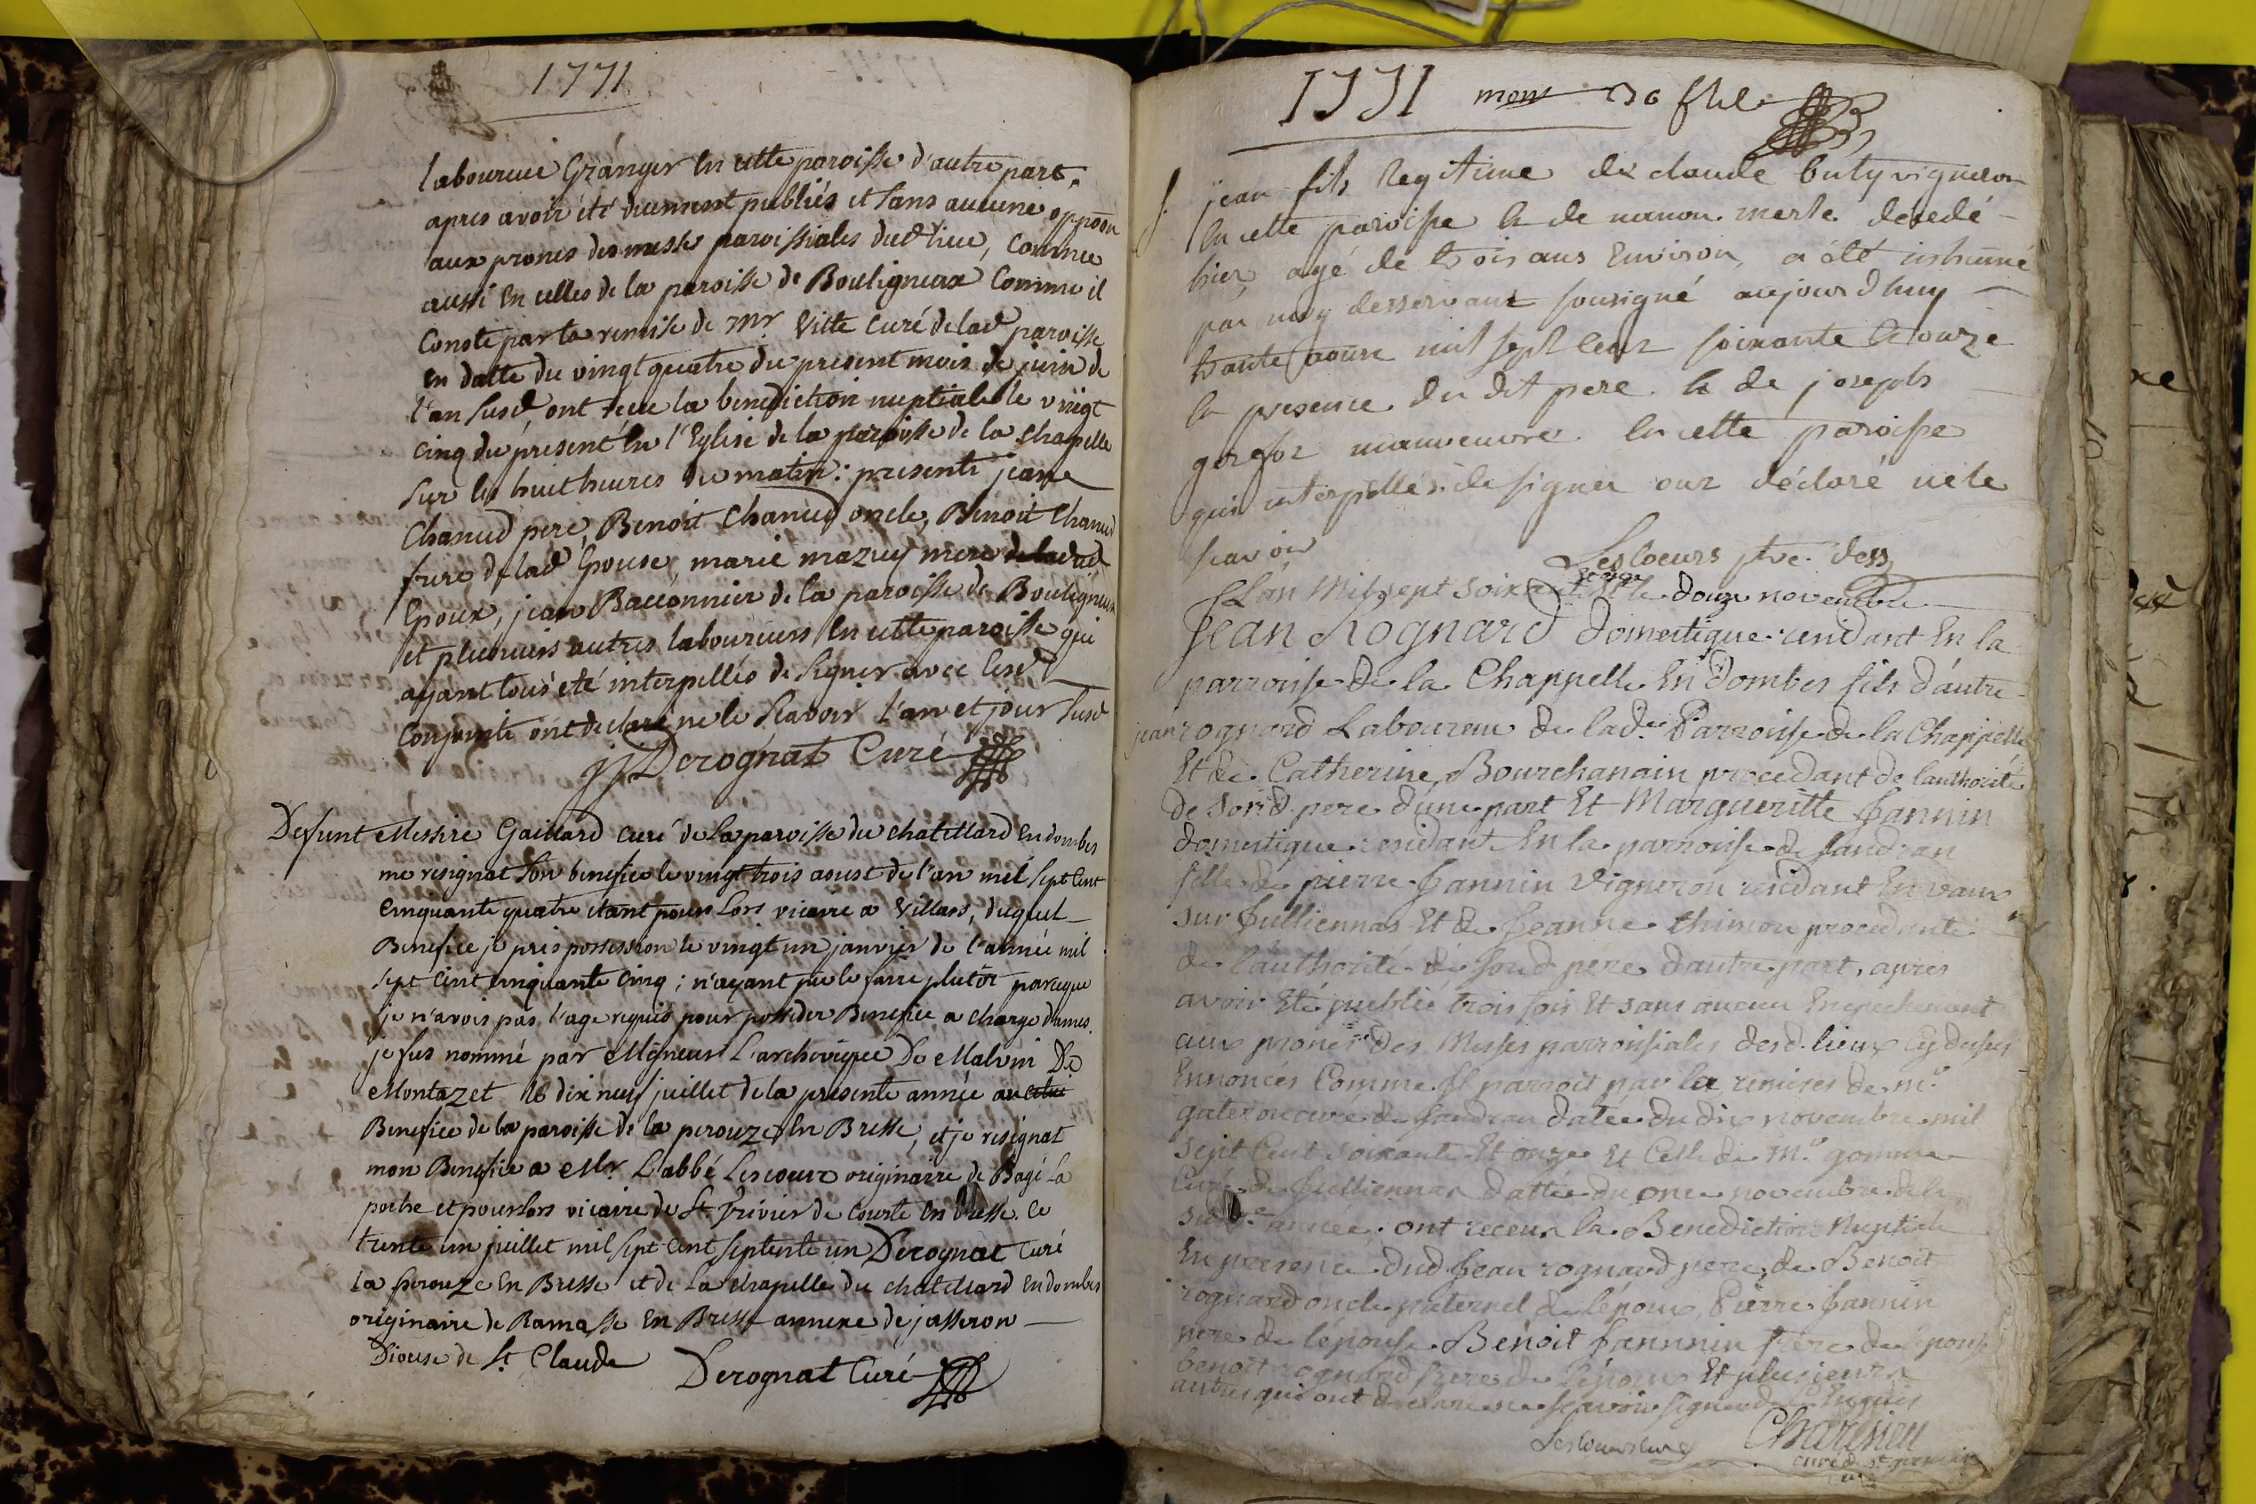 1771
laboureur Granger en cette paroisse d'autre part.
apres avoir été duement publiés et sans aucune oppoõn
aux prones des messes paroissiales dud lieu, comme
aussi en celles de la paroisse de Bouligneux comme il
conste par la remise de Mr Vitte curé de lad paroisse
en datte du vingt quatre du present mois de juin de
l'an susd, ont reçue la benediction nuptiale le vingt
cinq du présent en l'Eglise de la paroisse de la chapelle
sur les huit heures du matin: presents jean
Chanud pere, Benoit Chanud oncle, Benoit Chanud
frere de lad Epouse, marie mazuy mere
Epoux, jean Baconnier de la paroisse de Bouligneux
et plusieurs autres laboureurs en cette paroisse qui
ayant tous été interpellés de signer avec lesd
conjoints ont declaré ne le sçavoir l'an et jour susd
Derognat Curé
Defunt Messire Gaillard curé de la paroisse du chatellard en dombes
me resignat son benefice le vingt trois aoust de l'an mil sept cent
cinquante quatre étant pour lors vicaire a Villars, duquel
Benefice je pris possession le vingt un janvier de l'année mil
sept cent cinquante cinq; n'ayant pu le faire plutôt parceque
je n'avois pas l'age requis pour posseder Benefice a charge d'ames.
je fus nommé par Mgneur L'archeveque De Malvin De
Montazet le dix neuf juillet de la presente année au
Benefice de la paroisse de la perouze en Bresse, et je resignat
mon Benefice a Mr L'abbé Lescoeur originaire de Bagé La
et pour lors vicaire de St Trivier de Courte en Bresse. Ce
trente un juillet mil sept cent septente un Derognat Curé
La perouze en Bresse et de La chapelle du chatellard en dombes
originaire de Ramasse en Bresse annexe de jasseron
Diocese de St Claude Derognat Curé
1771
jean fils legitime de claude buty vigneron
en cette paroisse et de manon merle décedé
hier agé de trois ans environ, a été inhumé
par moy desservant sousigné aujourdhuy
trante aoust mil sept cent soixante et onze
en presence du dit pere et de joseph
manoeuvre en cette paroisse
qui interpellés de signer ont déclaré ne le
scavoir Lescoeurs ptre. dess
L'an Mil sept soixante et le douze novembre
Jean Rognard domestique residant En la
parroisse de la Chappelle En dombes fils d'autre
jean rognard Laboureur de lad. Parroisse de la Chappelle
Et de Catherine Bourchanain procedant de l'authorité
de sond. pere d'une part Et Margueritte Jannin
domestique residant En la parroisse de Sandran
fille de pierre Jannin vigneron residant En vaux
sur Julliennas Et de Jeanne thimon procedante
de l'authorité de sond pere d'autre part, apres
avoir été publié trois fois Et sans aucun Empechement
aux prones des Messes parroissiales desd. lieux cy dessus
Ennoncés Comme Il paroit par les remises de mr
curé de Sandran datée du dix novembre mil
sept Cent soixante Et onze Et Celle de Mr gomme
Curé de Julliennas dattée du onze novembre de la
année. ont receu la Benediction Nuptiale
En presence dud Jean rognard pere, de Benoit
rognard oncle paternel de l'époux, Pierre Jannin
pere de l'épouse Benoit Jannnin frère de l'épouse
benoit rognard frere de l'époux Et plusieurs
autres qui ont declaré ne sçavoir signer de ce Enquis
Charésieu